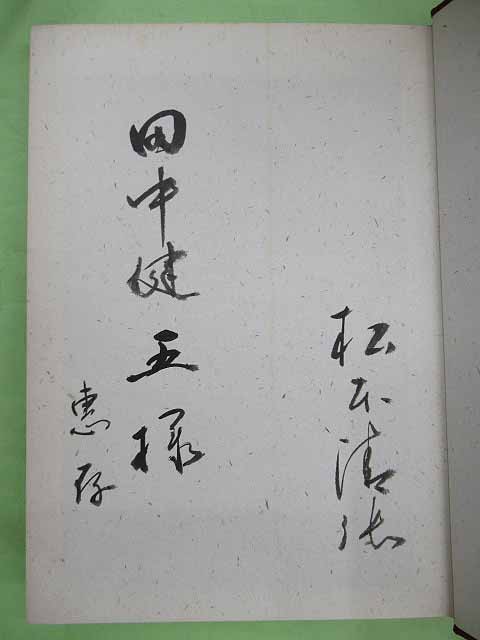 松本清張
田中健五様
恵存